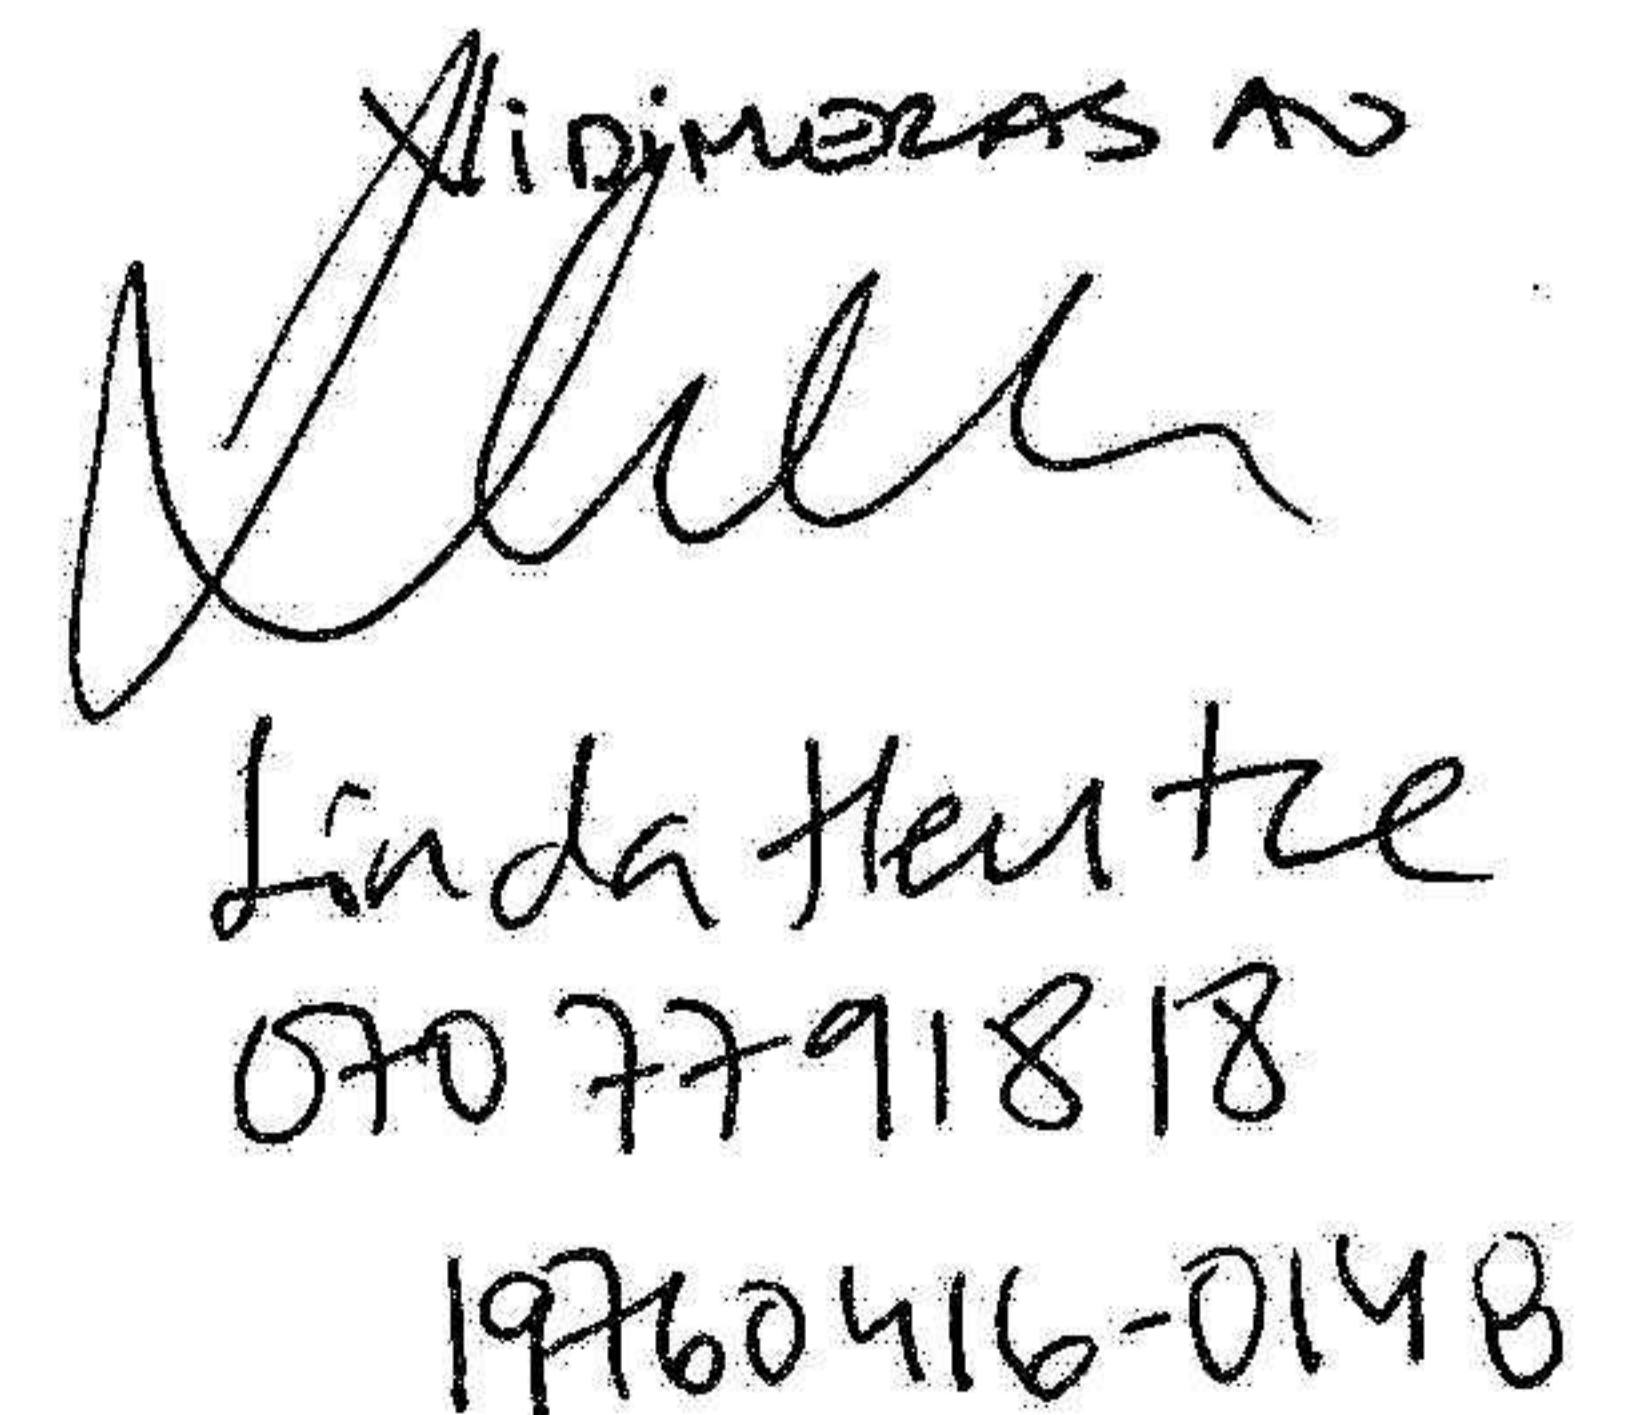 VIDIMERAS AV
Linda Hentze
070 7791818
19760416-0148